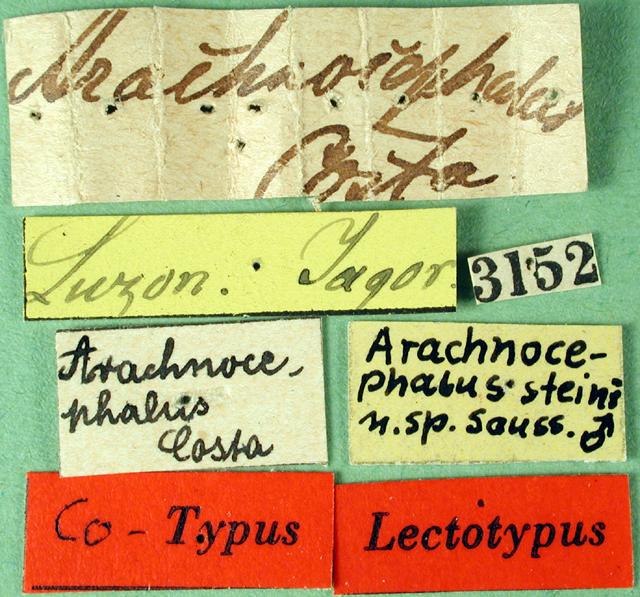 Arachnocephalus
Costa
Luzon. Jagor.
3152
Arachnoce-
phalus
Costa
Arachnoce-
phalus steini
n. sp. Sauss. ♂
Co - Typus
Lectotypus